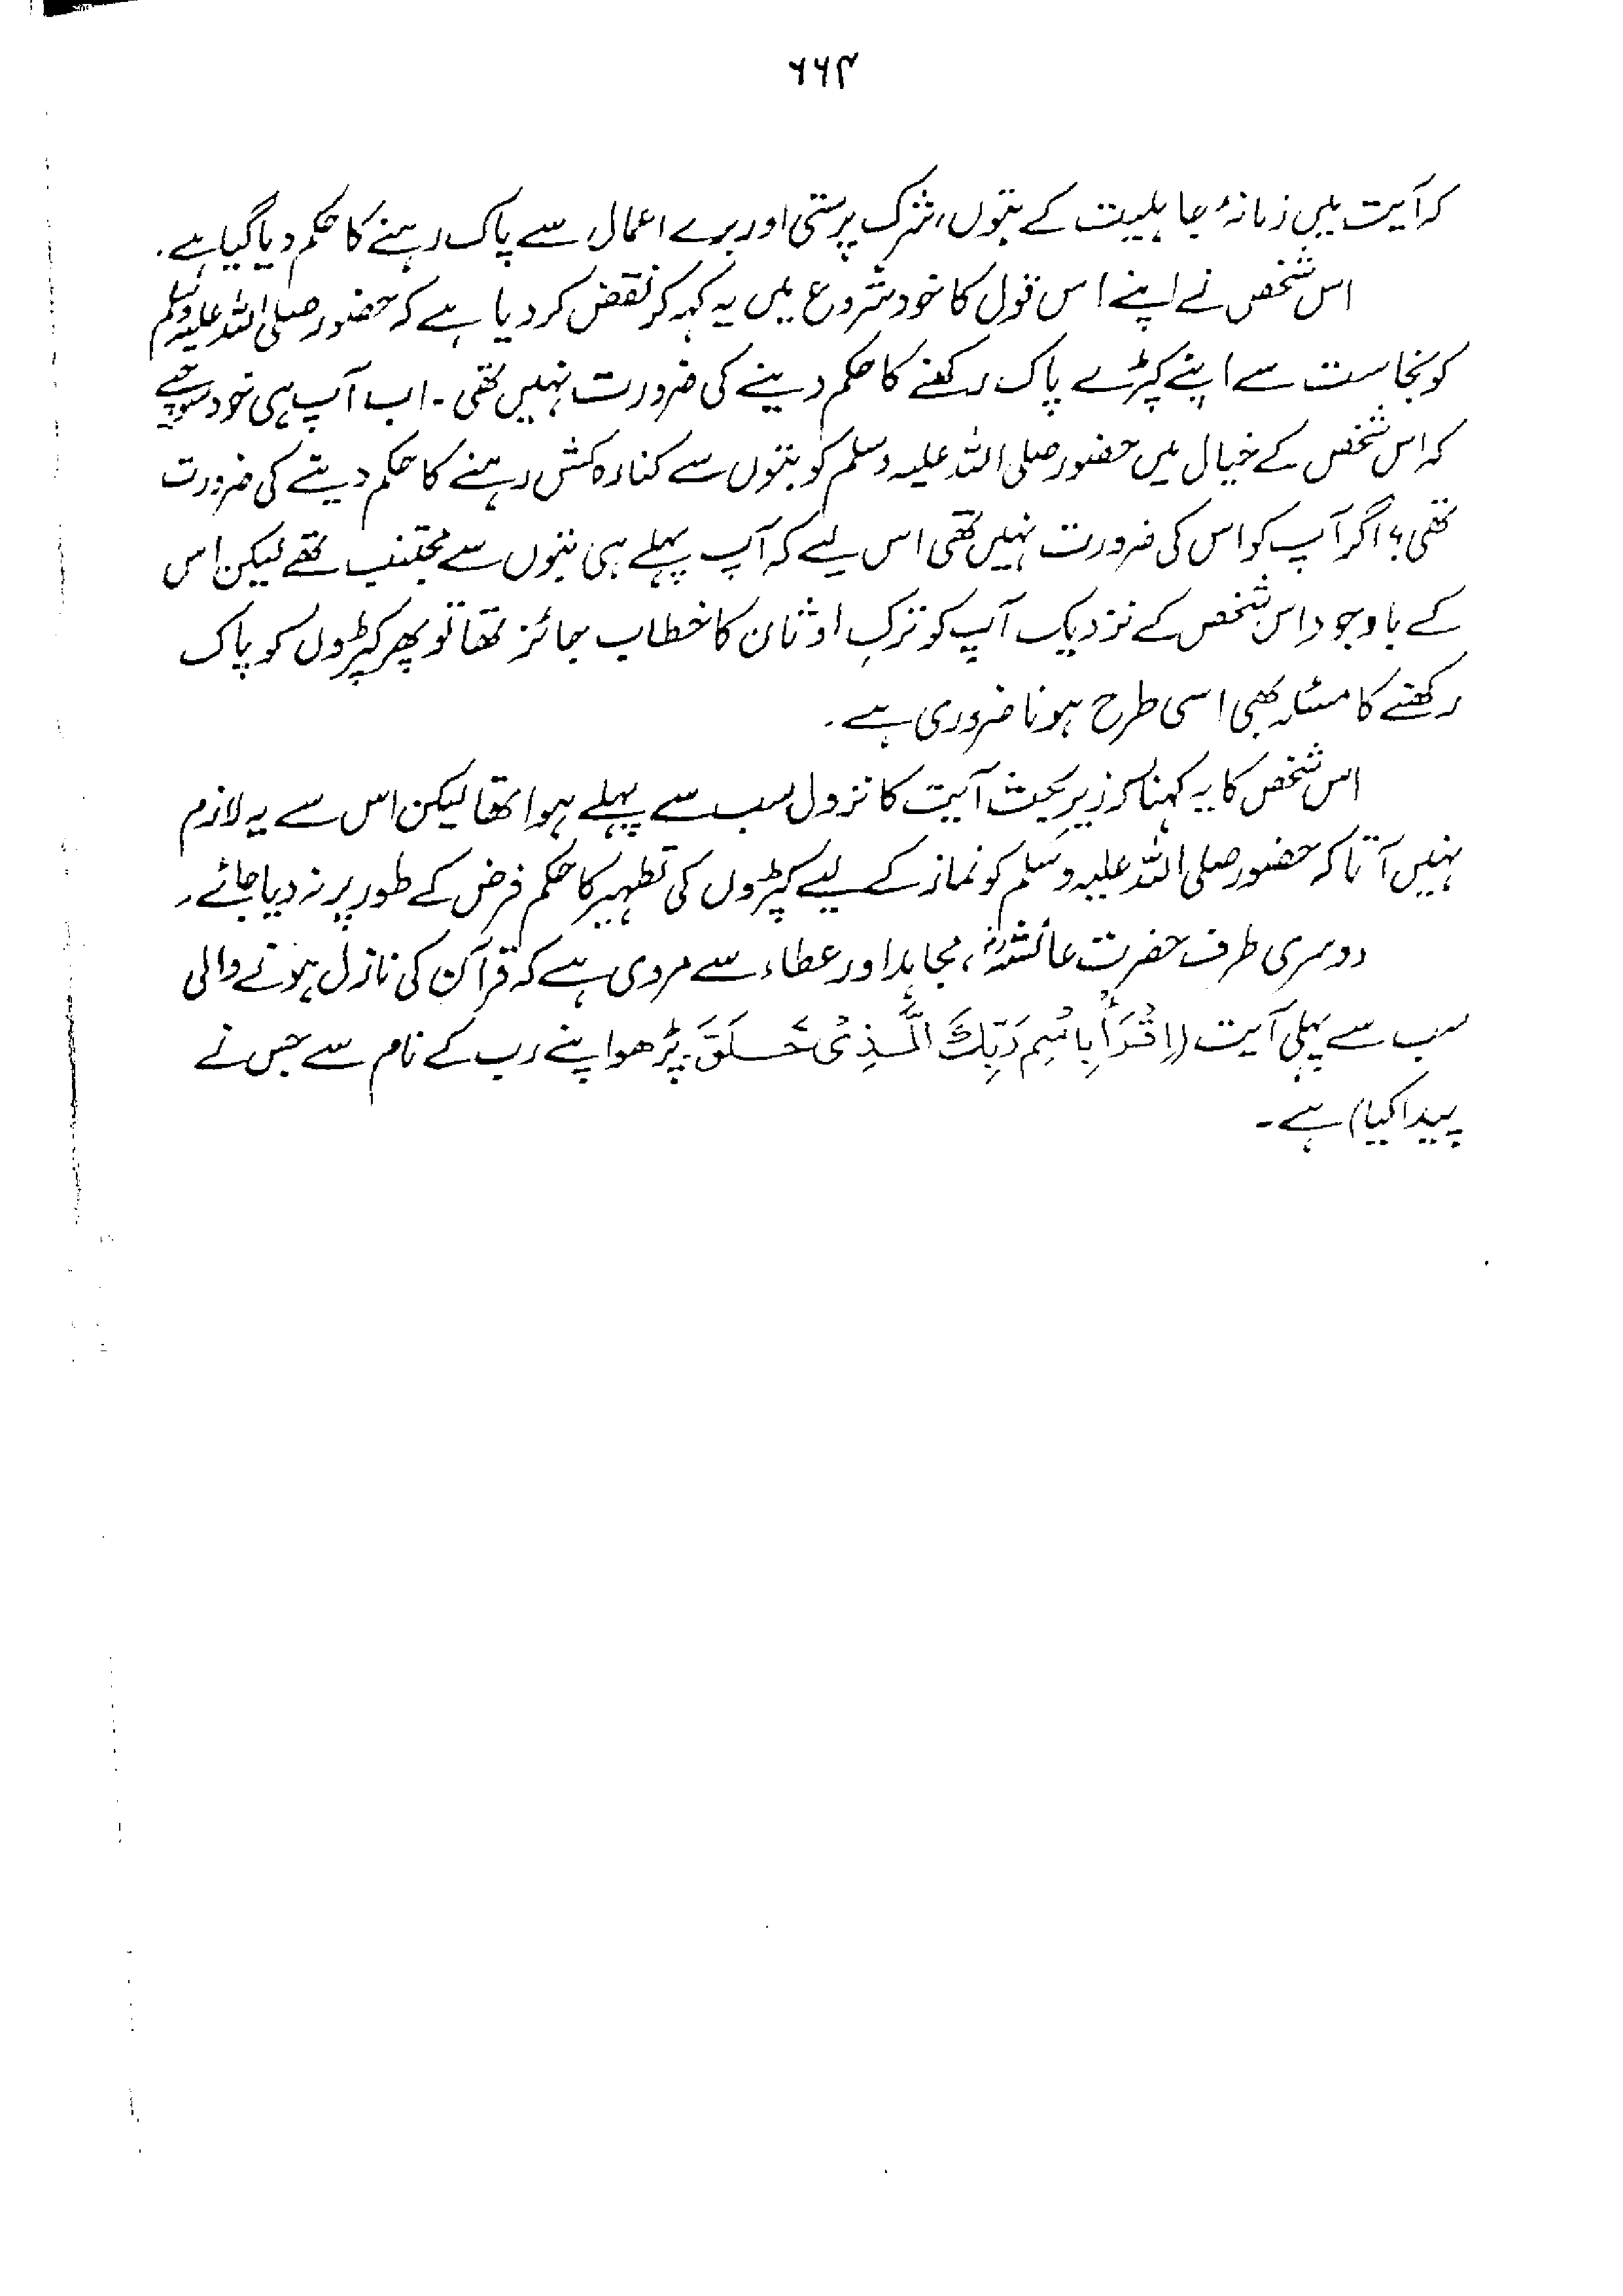 ۶۶۴
کہ آیت میں زمانۂ جاہلیت کے بتوں، شرک پرستی اور برے اعمال سے پاک رہنے کا حکم دیا گیا ہے۔
اس شخص نے اپنے اس قول کا خود شروع میں یہ کہہ کر نقض کر دیا ہے کہ حضور صلی اللہ علیہ وسلم
کو نجاست سے اپنے کپڑے پاک رکھنے کا حکم دینے کی ضرورت نہیں تھی۔ اب آپ ہی خود سوچیے
کہ اس شخص کے خیال میں حضور صلی اللہ علیہ وسلم کو بتوں سے کنارہ کش رہنے کا حکم دینے کی ضرورت
تھی؟ اگر آپ کو اس کی ضرورت نہیں تھی اس لیے کہ آپ پہلے ہی بتوں سے مجتنب تھے لیکن اس
کے باوجود اس شخص کے نزدیک آپ کو ترکِ اوثان کا خطاب جائز تھا تو پھر کپڑوں کو پاک
رکھنے کا مسئلہ بھی اسی طرح ہونا ضروری ہے۔
اس شخص کا یہ کہنا کہ زیرِ بحث آیت کا نزول سب سے پہلے ہوا تھا لیکن اس سے یہ لازم
نہیں آتا کہ حضور صلی اللہ علیہ وسلم کو نماز کے لیے کپڑوں کی تطہیر کا حکم فرض کے طور پر نہ دیا جائے۔
دوسری طرف حضرت عائشہؓ، مجاہد اور عطاء سے مروی ہے کہ قرآن کی نازل ہونے والی
سب سے پہلی آیت (اِقْرَأْ بِاسْمِ رَبِّكَ الَّذِیْ خَلَقَ۔ پڑھو اپنے رب کے نام سے جس نے
پیدا کیا) ہے۔